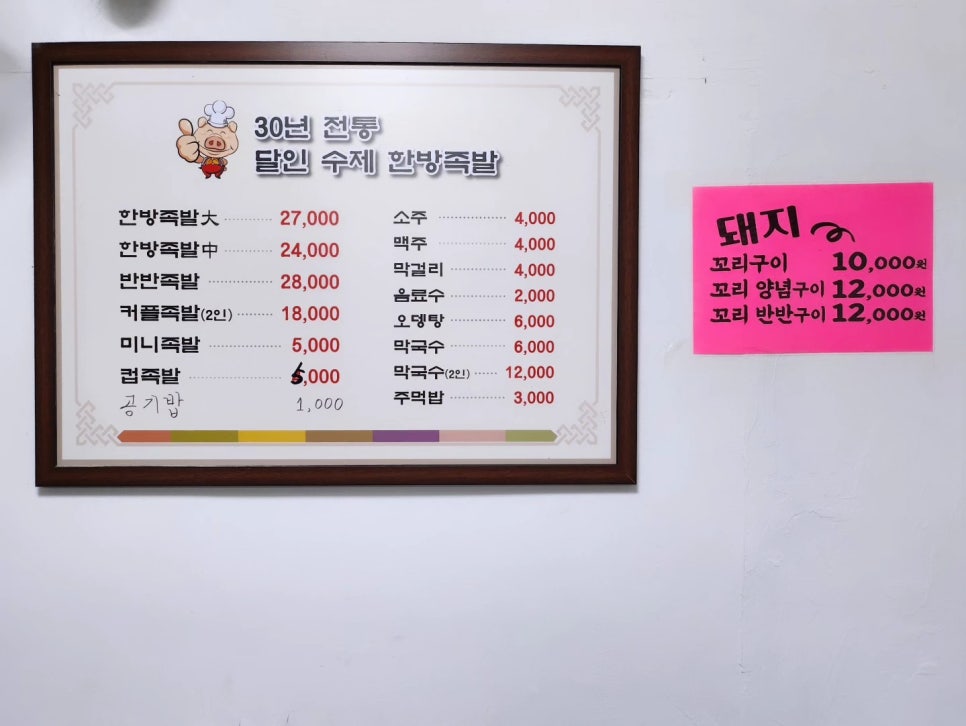 30년 전통
달인 수제 한방족발
한방족발大 27,000
한방족발中 24,000
반반족발 28,000
커플족발(2인) 18,000
미니족발 5,000
컵족발 6,000
공기밥 1,000
소주 4,000
맥주 4,000
막걸리 4,000
음료수 2,000
오뎅탕 6,000
막국수 6,000
막국수(2인) 12,000
주먹밥 3,000
돼지
꼬리구이 10,000원
꼬리 양념구이 12,000원
꼬리 반반구이 12,000원